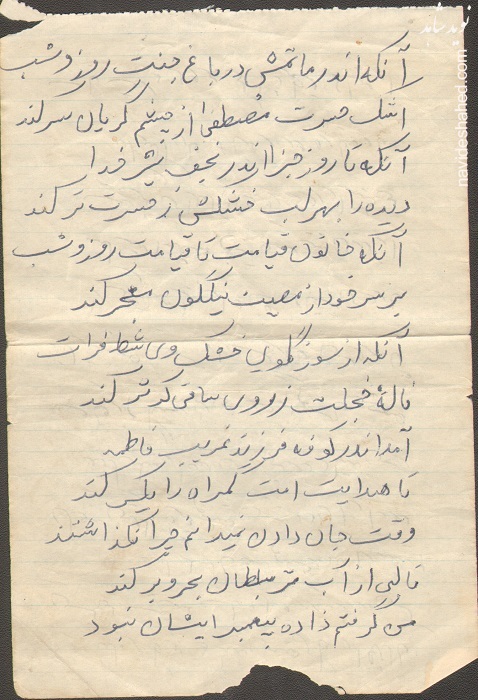 نوید شاهد
navideshahed.com
آنکه اندر ماتمش در باغ جنت روز و شب
اشک حسرت مصطفی از چشم گریان سر کند
آنکه تا روز جزا اندر نجف شیر خدا
دیده را بهر لب خشکش ز حسرت تر کند
آنکه خاتون قیامت تا قیامت روز و شب
بر سر خود از مصیبت نیلگون معجر کند
آنکه از سوز گلوی خشک وی شط فرات
ناله خجلت ز روی ساقی کوثر کند
آمد اندر کوفه فرزند غریب فاطمه
تا هدایت امت گمراه را یکسر کند
وقت جان دادن نمیدانم چرا نگذاشتند
قالبی از آب تر سلطان بحر و بر کند
من گرفتم زاده پیغمبر ایشان نبود